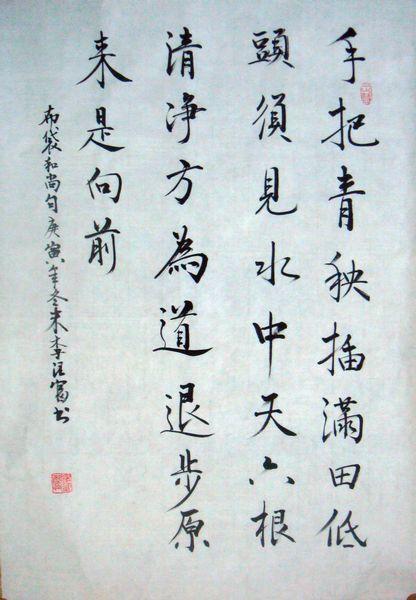 手把青秧插滿田低
頭須見水中天六根
清净方為道退步原
来是向前
布袋和尚句庚寅年冬末李汪富书